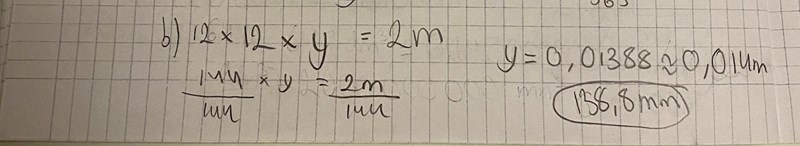 b) 12 × 12 × y = 2m
144/144 × y = 2m/144
y = 0,01388 ≈ 0,014m
138,8mm